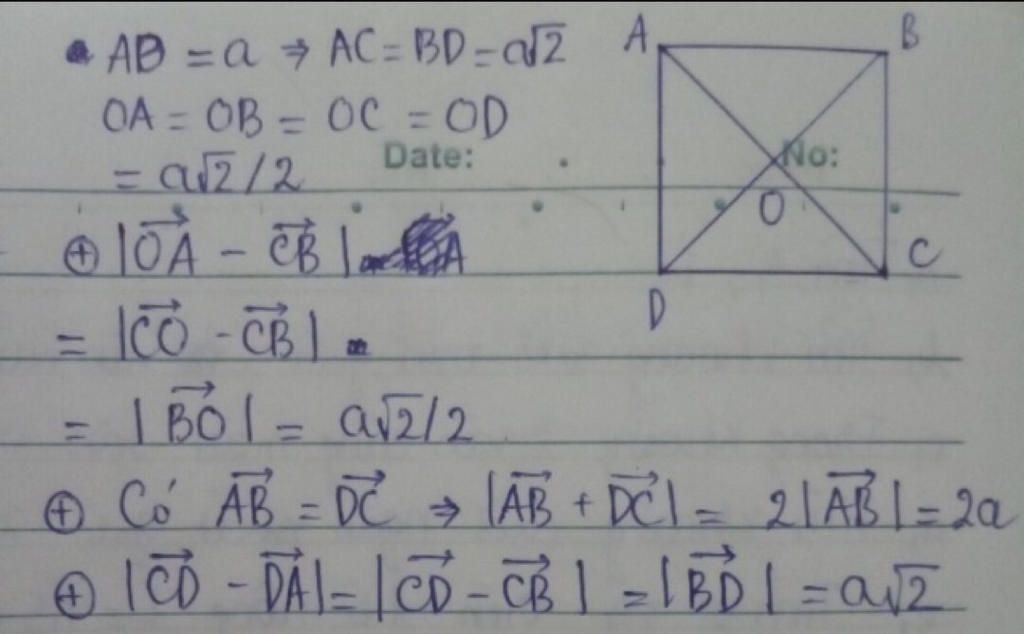 • AB = a ⇒ AC = BD = a√2
OA = OB = OC = OD
= a√2/2
Date:
No:
⊕ |OA⃗ - CB⃗|
= |CO⃗ - CB⃗|
= |BO⃗| = a√2/2
⊕ Có AB⃗ = DC⃗ ⇒ |AB⃗ + DC⃗| = 2|AB⃗| = 2a
⊕ |CD⃗ - DA⃗| = |CD⃗ - CB⃗| = |BD⃗| = a√2
A
B
O
C
D